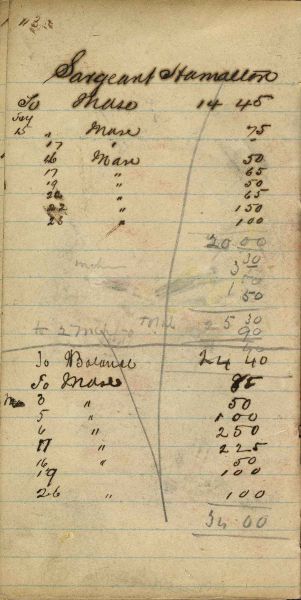 Sargeant Hamalton
To Mdse 14 45
15 " Mdse 75
17 "
16 Mdse 50
17 " 65
19 " 50
20 " 65
22 " 150
23 " 100
20 00
30
50
total 25 30
90
To Balance 24 40
To Mdse 85
3 " 50
5 " 100
6 " 250
11 " 225
16 " 50
19 100
26 " 100
34 00